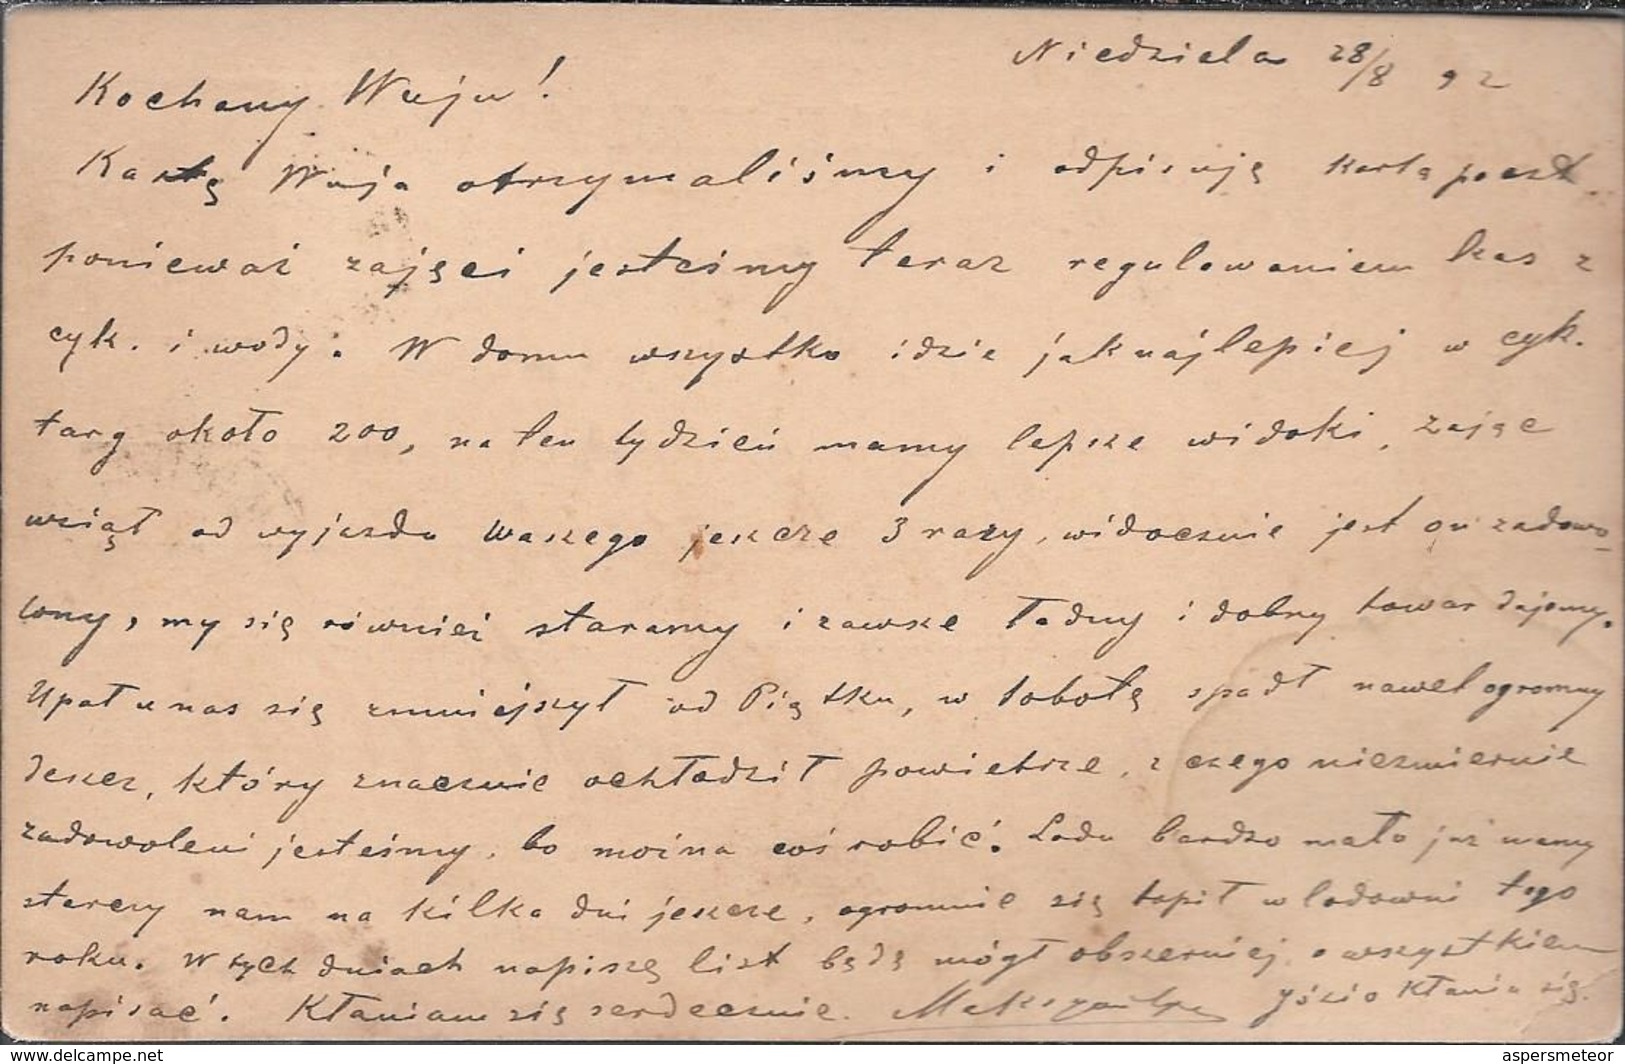 Niedziela 28/8 92
Kochany Wuju!
Kartę Wuja otrzymaliśmy i odpisuję kartą poczt.
ponieważ zajęci jesteśmy teraz regulowaniem kas z
cyk. i wody. W domu wszystko idzie jaknajlepiej w cyk.
targ około 200, na ten tydzień mamy lepsze widoki, zając
wziął od wyjazdu Waszego jeszcze 3 razy, widocznie jest on zadowo-
lony, my się również staramy i zawsze ładny i dobry towar dajemy.
Upał u nas się zmniejszył od Piątku, w sobotę spadł nawet ogromny
deszcz, który znacznie ochłodził powietrze, z czego niezmiernie
zadowoleni jesteśmy, bo można coś robić. Lodu bardzo mało już mamy
starczy nam na kilka dni jeszcze, ogromnie się topił w lodowni tego
roku. W tych dniach napiszę list będę mógł obszerniej o wszystkiem
napisać. Kłaniam się serdecznie. Józio kłania się.
aspersmeteor
www.delcampe.net